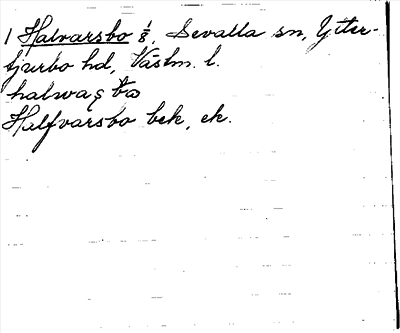 1 Halvarsbo 1/8, Sevalla sn, Ytter-
tjurbo hd, Västm. l.
Halfvarsbo bek, ek.